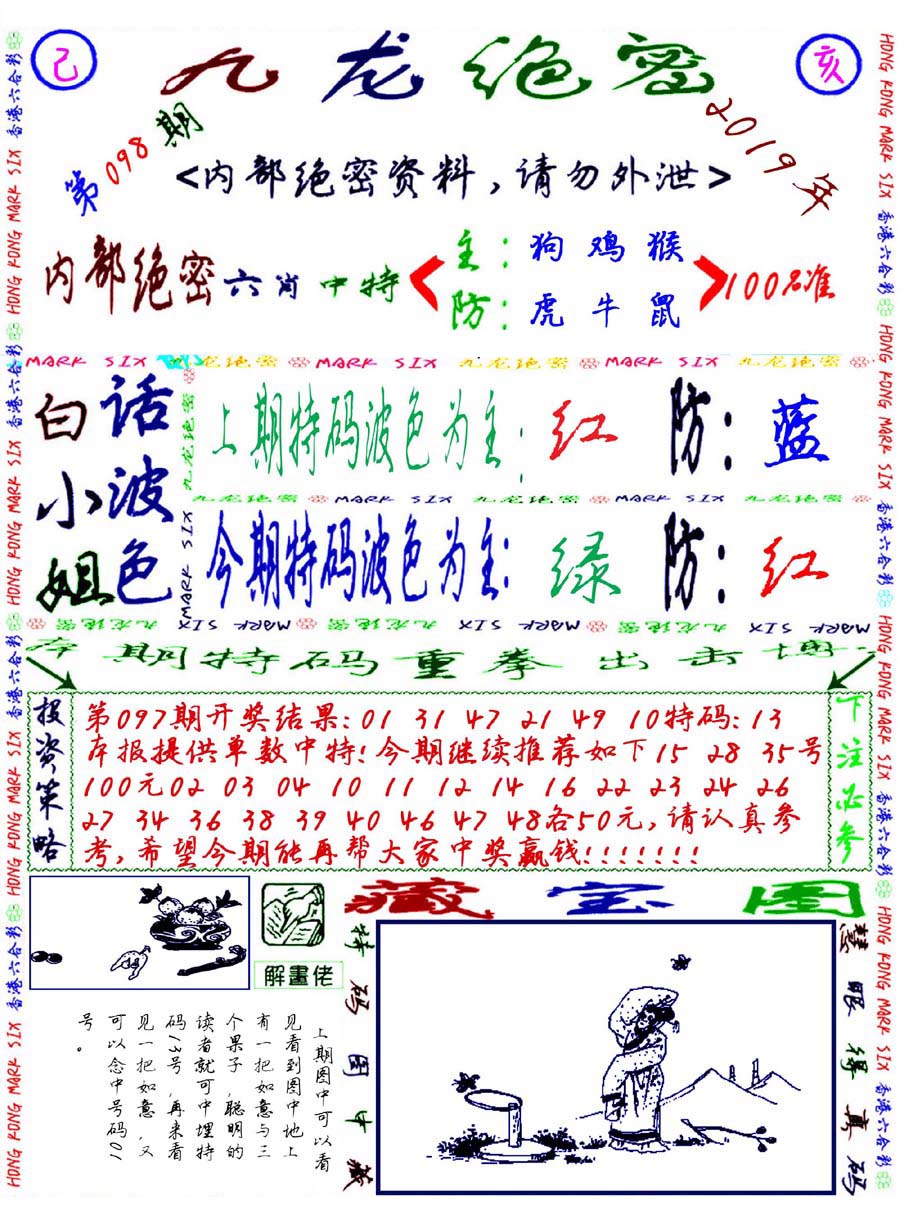 己
九龙绝密
亥
第098期
2019年
<内部绝密资料,请勿外泄>
内部绝密六肖中特
主:狗鸡猴
防:虎牛鼠
100%准
MARK SIX 九龙绝密 MARK SIX 九龙绝密 MARK SIX 九龙绝密
白话小姐
波色
上期特码波色为主:红 防:蓝
九龙绝密 MARK SIX 九龙绝密 MARK SIX 九龙绝密
今期特码波色为主:绿 防:红
九龙绝密 MARK SIX
MARK SIX 九龙绝密 MARK SIX 九龙绝密 MARK SIX 九龙绝密
本期特码重拳出击博
投资策略
第097期开奖结果:01 31 47 21 49 10特码:13
本报提供单数中特!今期继续推荐如下15 28 35号
100元02 03 04 10 11 12 14 16 22 23 24 26
27 34 36 38 39 40 46 47 48各50元,请认真参
考,希望今期能再帮大家中奖赢钱!!!!!!!
下注必参
解畫佬
藏宝图
特码图中藏
慧眼得真码
上期图中可以看
见看到图中地上
有一把如意与三
个果子,聪明的
读者就可中埋特
码13号,再来看
见一把如意,又
可以念中号码01
号。
HONG KONG MARK SIX 香港六合彩 HONG KONG MARK SIX 香港六合彩 HONG KONG MARK SIX 香港六合彩 HONG KONG MARK SIX 香港六合彩
HONG KONG MARK SIX 香港六合彩 HONG KONG MARK SIX 香港六合彩 HONG KONG MARK SIX 香港六合彩 HONG KONG MARK SIX 香港六合彩